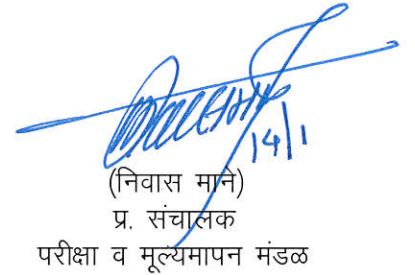 14/1
(निवास माने)
प्र. संचालक
परीक्षा व मूल्यमापन मंडळ